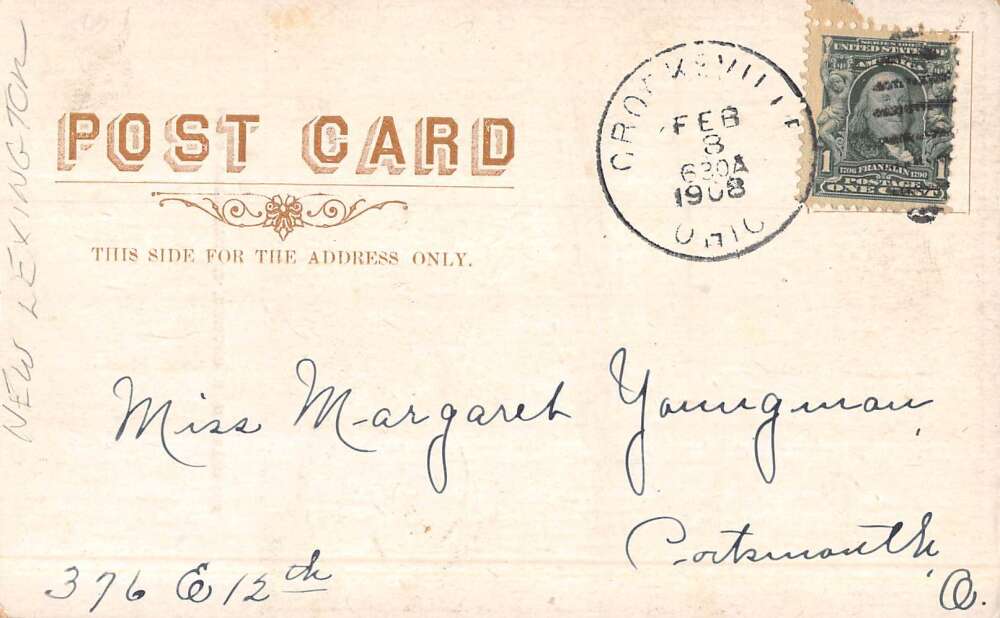 NEW LEXINGTON
POST CARD
THIS SIDE FOR THE ADDRESS ONLY.
CROOKSVILLE
FEB
3
630A
1908
OHIO
SERIES 1902
UNITED STATES OF
AMERICA
1 1706 FRANKLIN 1790 1
POSTAGE
ONE CENT
Miss Margaret Youngman,
Portsmouth,
376 E 12th
O.